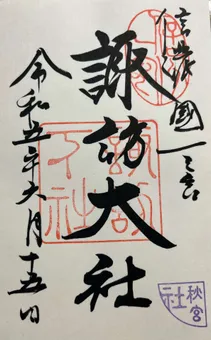 信濃國一之宮
諏訪大社
令和五年六月十五日
諏訪
下社
秋宮
社